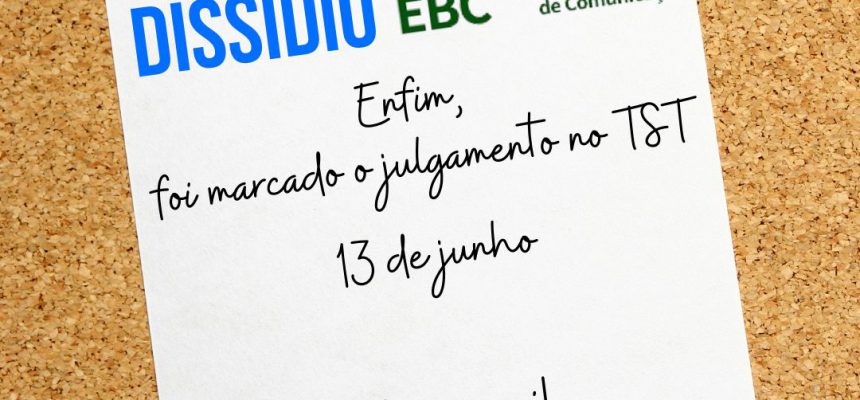 DISSÍDIO EBC
Enfim,
foi marcado o julgamento no TST
13 de junho